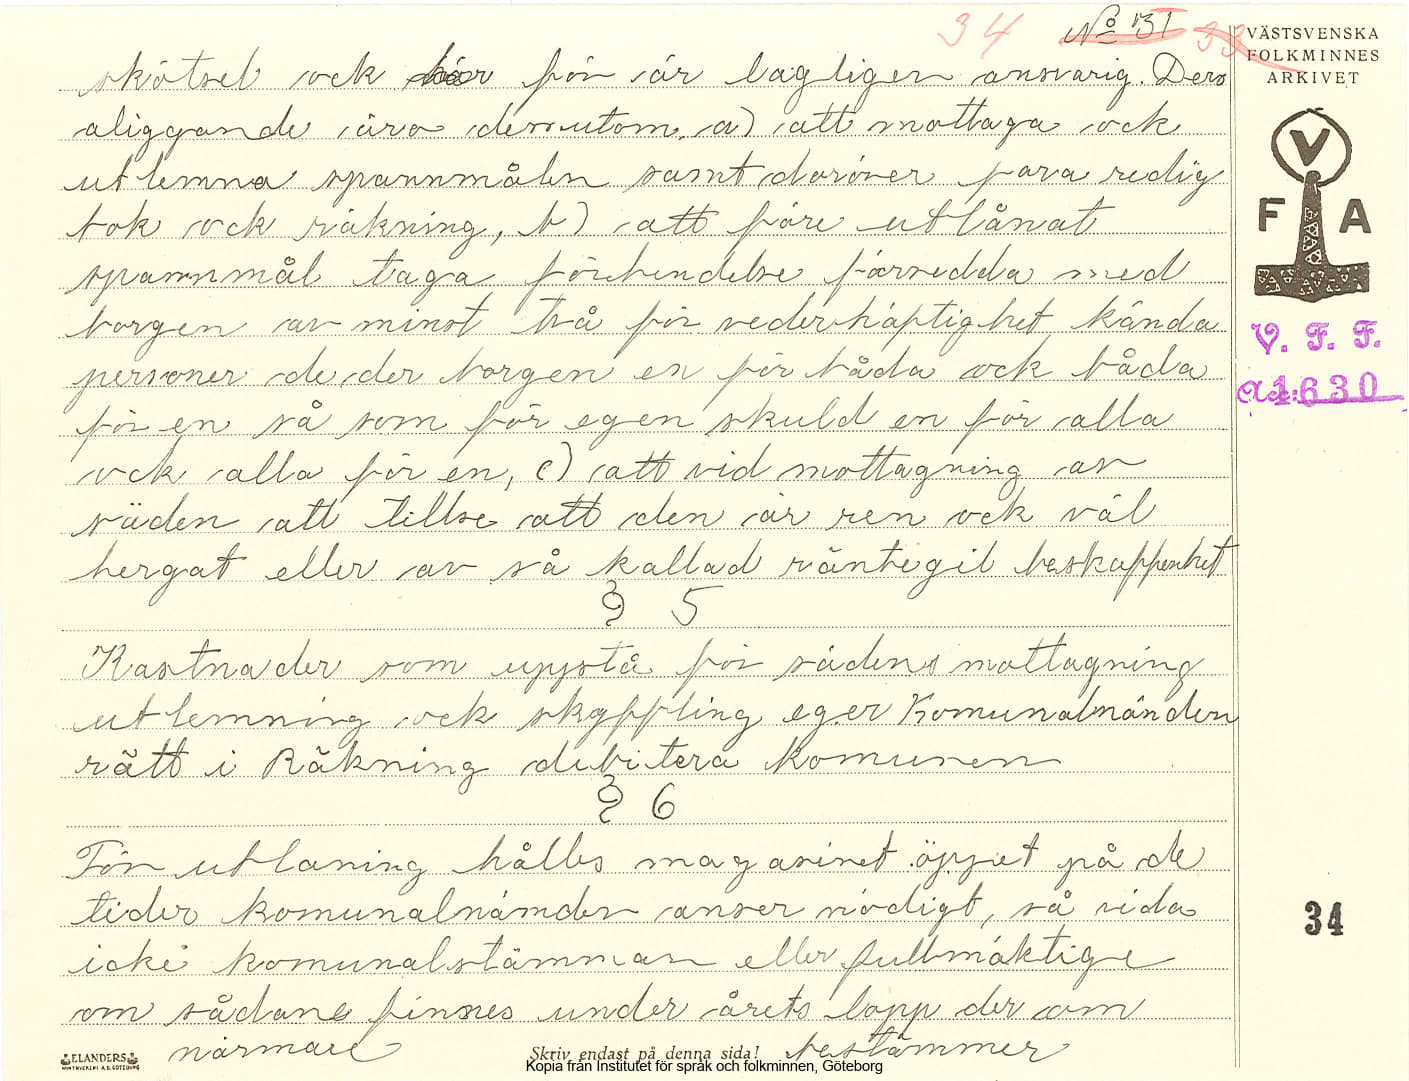 34 No 131 33
VÄSTSVENSKA
FOLKMINNES
ARKIVET
skötsel ock här för är lagligen ansvarig. Ders
åliggande äro dessutom, a) att mottaga ock
utlemna spannmålen samt daröver föra redig
bok ock räkning, b) att före utlånat
spannmål taga förbindelse försedda med
borgen av minst två för vederhäftighet kända
personer de der borgen en för båda ock båda
för en så som för egen skuld en för alla
ock alla för en, c) att vid mottagning av
säden att tillse att den är ren ock väl
bergat eller av så kallad räntegil beskaffenhet
§ 5
Kostnader som uppstå för sädens mottagning
utlemning ock skyffling eger Komunalnämden
rätt i Räkning debitera komunen
§ 6
För utlåning hålles magasinet öppet på de
tider komunalnämden anser nödigt, så vida
icke komunalstämman eller fullmäktige
om sådane finnes under årets lopp der om
närmare bestämmer
V
F A
V. F. F.
Acc: 1630
34
ELANDERS
Skriv endast på denna sida!
Kopia från Institutet för språk och folkminnen, Göteborg